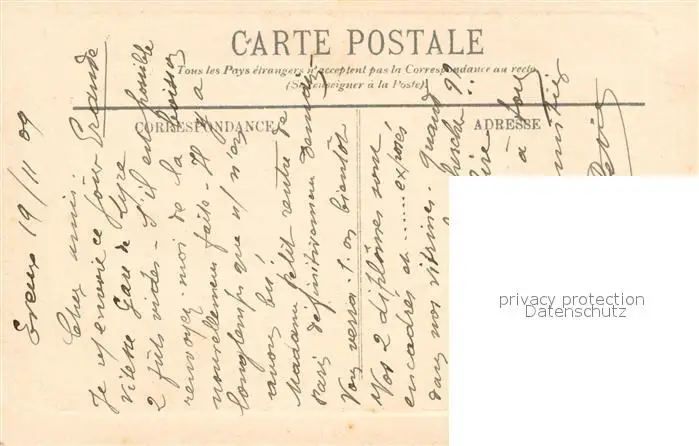 CARTE POSTALE
Tous les Pays étrangers n'acceptent pas la Correspondance au recto
(Se renseigner à la Poste).
CORRESPONDANCE
ADRESSE
Evreux 19/11 09
Chers amis.
Je vs envoie ce jour Grande
Vitesse Gare de Lyre
2 fûts vides - S'il est possible
renvoyez-moi de la boisson
nouvellement faite - Il y a
longtemps que ns n'en
avons bu!
Madame Petit rentre de
Paris définitivement Demain
Vous verra-t-on bientôt
Vos 2 diplômes sont
encadrés et ...... exposés
dans nos vitrines. Quand
??
à tous
privacy protection
Datenschutz